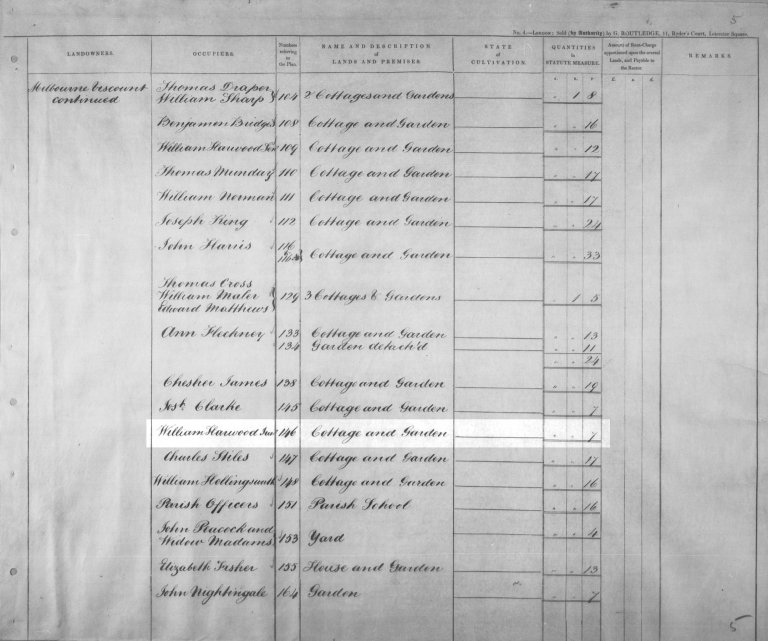 5
No. 4.—London: Sold (by Authority) by G. ROUTLEDGE, 11, Ryder's Court, Leicester Square.
LANDOWNERS. OCCUPIERS. Numbers referring to the Plan. NAME AND DESCRIPTION of LANDS AND PREMISES. STATE of CULTIVATION. QUANTITIES in STATUTE MEASURE. Amount of Rent-Charge apportioned upon the several Lands, and Payable to the Rector. REMARKS.
A. R. P. £. s. d.
Melbourne Viscount Thomas Draper
continued William Sharp 104 2 Cottages and Gardens " 1 8
Benjamen Bridges 108 Cottage and Garden " " 16
William Harwood Sen 109 Cottage and Garden " " 12
Thomas Munday 110 Cottage and Garden " " 17
William Norman 111 Cottage and Garden " " 17
Joseph King 112 Cottage and Garden " " 24
John Harris 116
116a Cottage and Garden " " 33
Thomas Cross
William Maler 129 3 Cottages & Gardens " 1 5
Edward Matthews
Ann Flechney 133 Cottage and Garden " " 13
134 Garden detach'd " " 11
" " 24
Chesher James 138 Cottage and Garden " " 19
Josh. Clarke 145 Cottage and Garden " " 7
William Harwood Junr 146 Cottage and Garden " " 7
Charles Stiles 147 Cottage and Garden " " 17
William Hollingsworth 148 Cottage and Garden " " 16
Parish Officers 151 Parish School " " 16
John Peacock and
Widow Madams 153 Yard " " 4
Elizabeth Fisher 155 House and Garden " " 13
John Nightingale 164 Garden " " 7
5